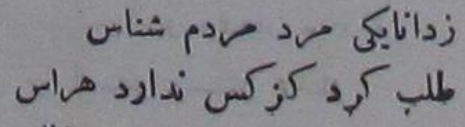 زدانا یکی مرد مردم شناس
طلب کرد کز کس ندارد هراس